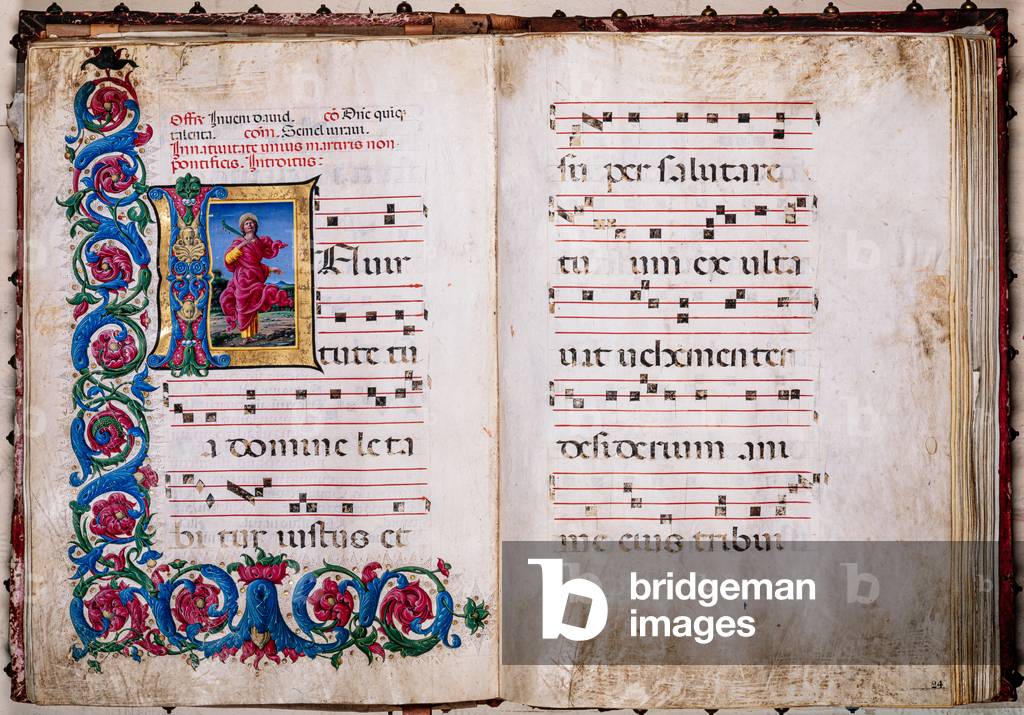 Offr̃. Inueni dauid. cō Dñe quiq̃
talenta. com̄. Semel iuraui.
In natiuitate unius martiris non
pontificis. Introitus:
IN uir
tute tu
a domine leta
bi tur iustus et
su per salutare
tu um ex ulta
uit uehementer
desiderium ani
me eius tribui
24
b bridgeman
images